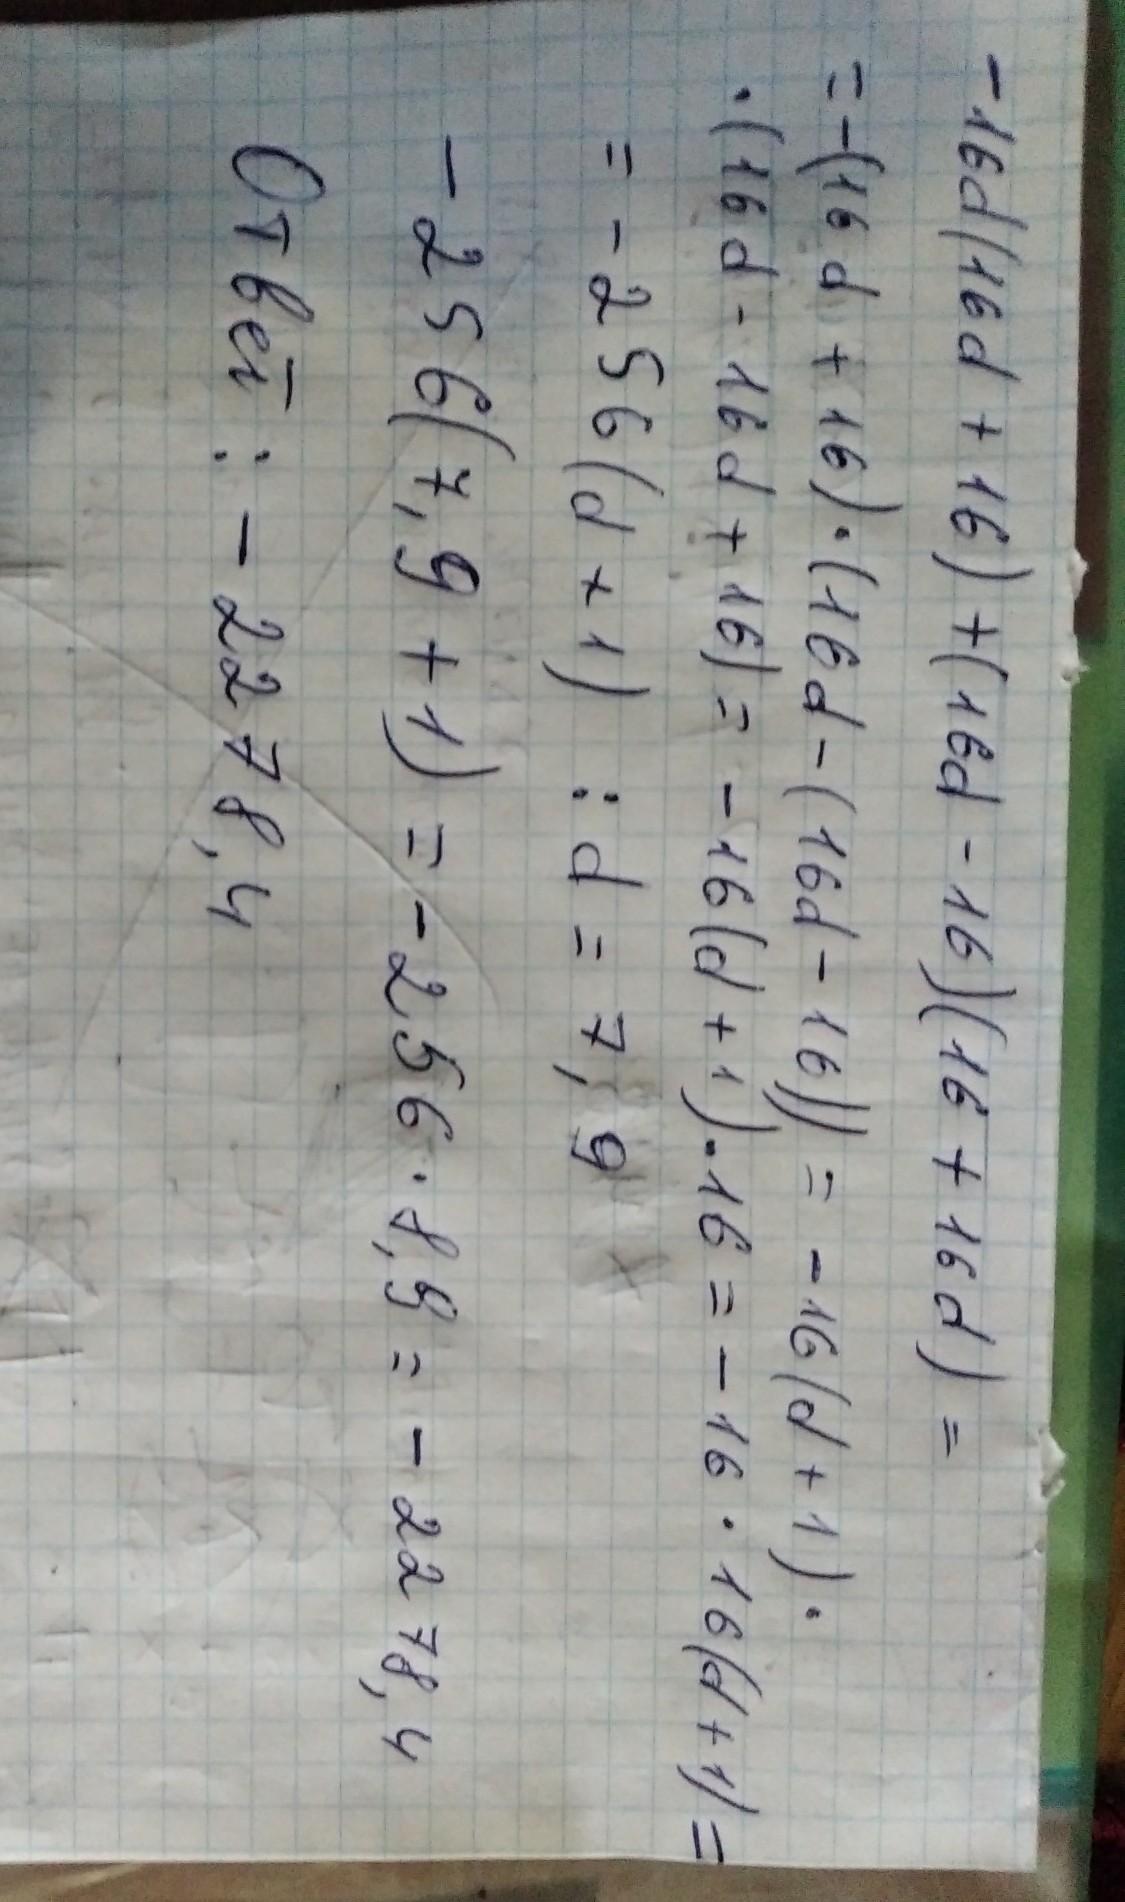 -16d(16d + 16) + (16d - 16)(16 + 16d) =
= -(16d + 16) · (16d - (16d - 16)) = -16(d + 1) ·
· (16d - 16d + 16) = -16(d + 1) · 16 = -16 · 16(d + 1) =
= -256(d + 1) : d = 7,9
-256(7,9 + 1) = -256 · 8,9 = -2278,4
Ответ : -2278,4